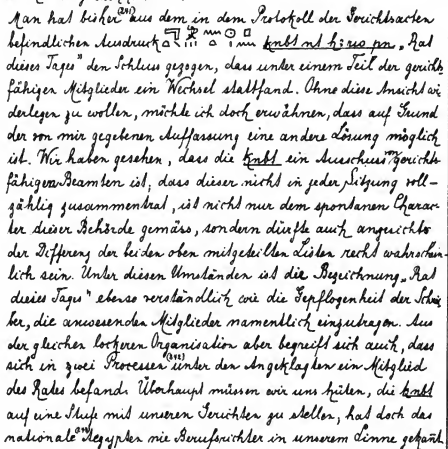 Man hat bisher (241) aus dem in dem Protokoll der Gerichtsacten
befindlichen Ausdruck knbt nt hrw pn „Rat
dieses Tages" den Schluss gezogen, dass unter einem Teil der gerichts
fähigen Mitglieder ein Wechsel stattfand. Ohne diese Ansicht wi-
derlegen zu wollen, möchte ich doch erwähnen, dass auf Grund
der von mir gegebenen Auffassung eine andere Lösung möglich
ist. Wir haben gesehen, dass die knbt ein Ausschuss von gerichts-
fähigen Beamten ist; dass dieser nicht in jeder Sitzung voll-
zählig zusammentrat, ist nicht nur dem spontanen Charac-
ter dieser Behörde gemäss, sondern dürfte auch angesichts
der Differenz der beiden oben mitgeteilten Listen recht wahrschein-
lich sein. Unter diesen Umständen ist die Bezeichnung „Rat
dieses Tages" ebenso verständlich wie die Gepflogenheit der Schrei-
ber, die anwesenden Mitglieder namentlich einzutragen. Aus
der gleichen lockeren Organisation aber begreift sich auch, dass
sich in zwei Processen (242) unter den Angeklagten ein Mitglied
des Rates befand. Überhaupt müssen wir uns hüten, die knbt
auf eine Stufe mit unseren Gerichten zu stellen, hat doch das
nationale Aegypten nie Berufsrichter in unserem Sinne gekannt